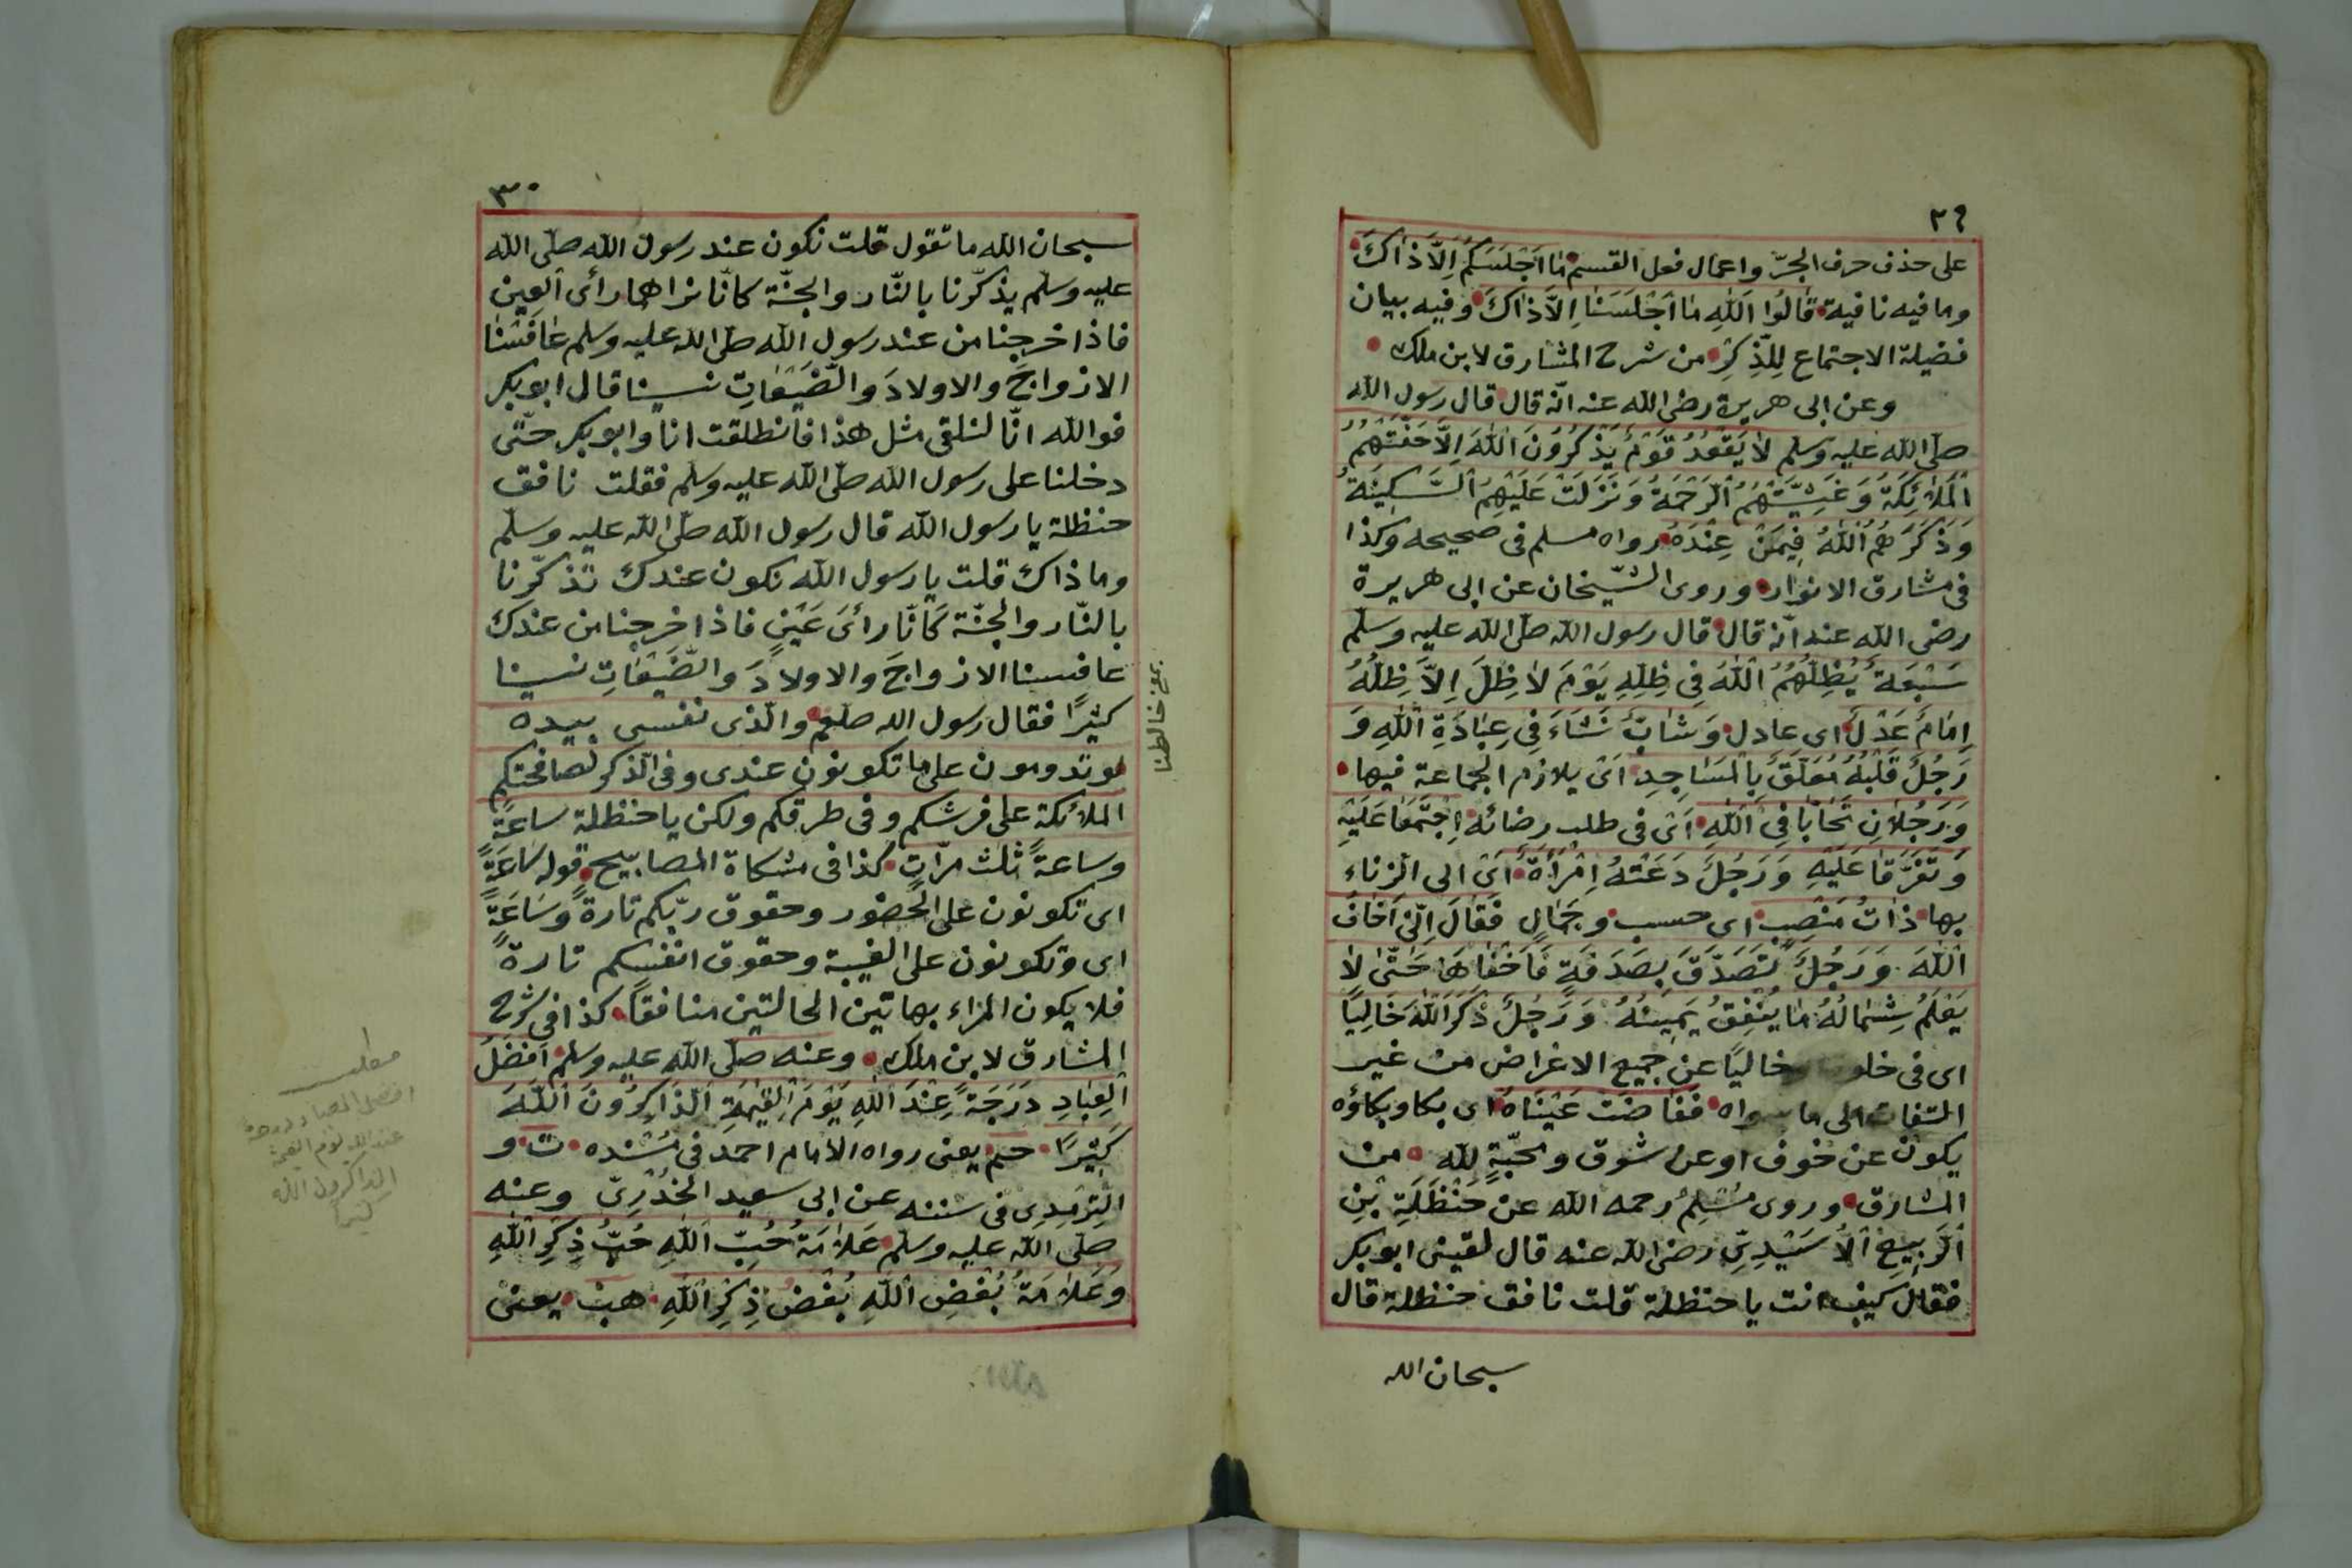 ٢٩
على حذف حرف الجرّ واعمال فعل القسم ما اَجْلَسَكُمْ اِلَّا ذَاكَ
وما فيه نافية قَالُوا اَللهِ مَا اَجْلَسَنَا اِلَّا ذَاكَ وفيه بيان
فضيلة الاجتماع لِلذِّكْرِ من شرح المشارق لابن ملك
وعن ابى هريرة رضى الله عنه انّه قال قال رسول الله
صلّى الله عليه وسلم لَا يَقْعُدُ قَوْمٌ يَذْكُرُونَ اللهَ اِلَّا حَفَّتْهُمُ
الْمَلَائِكَةُ وَغَشِيَتْهُمُ الرَّحْمَةُ وَنَزَلَتْ عَلَيْهِمُ السَّكِينَةُ
وَذَكَرَهُمُ اللهُ فِيمَنْ عِنْدَهُ رواه مسلم فى صحيحه وكذا
فى مشارق الانوار وروى الشّيخان عن ابى هريرة
رضى الله عنه انّه قال قال رسول الله صلّى الله عليه وسلّم
سَبْعَةٌ يُظِلُّهُمُ اللهُ فِى ظِلِّهِ يَوْمَ لَا ظِلَّ اِلَّا ظِلُّهُ
اِمَامٌ عَدْلٌ اى عادل وَشَابٌّ نَشَاءَ فِى عِبَادَةِ اللهِ وَ
رَجُلٌ قَلْبُهُ مُعَلَّقٌ بِالْمَسَاجِدِ اَىْ يلازم الجماعة فيها
وَرَجُلَانِ تَحَابَّا فِى اللهِ اَىْ فى طلب رضائه اِجْتَمَعَا عَلَيْهِ
وَتَفَرَّقَا عَلَيْهِ وَرَجُلٌ دَعَتْهُ اِمْرَأَةٌ اَىْ الى الزناء
بها ذَاتُ مَنْصِبٍ اى حسب وجَمَالٍ فَقَالَ اِنِّى اَخَافُ
اللهَ وَرَجُلٌ تَصَدَّقَ بِصَدَقَةٍ فَاَخْفَاهَا حَتَّى لَا
يَعْلَمُ شِمَالُهُ مَا يُنْفِقُ يَمِينُهُ وَرَجُلٌ ذَكَرَ اللهَ خَالِيًا
اى فى خلوة خاليًا عن جميع الاغراض من غير
التفات الى ما سواه فَفَاضَتْ عَيْنَاهُ اى بكا وبكاؤه
يكون عن خوف او عن شوق ومحبّةٍ لله من
المشارق وروى مُسْلِمٌ رحمه الله عن حَنْظَلَةِ بْنِ
الرَّبِيعِ الْاُسَيْدِىِّ رضى الله عنه قال لقينى ابو بكر
فقال كيف انت يا حنظلة قلت نافق حنظلة قال
سبحان الله
٣٠
سبحان الله ما تقول قلت نكون عند رسول الله صلّى الله
عليه وسلّم يذكّرنا بالنّار والجنّة كانّا نراهما رأى العين
فاذا خرجنا من عند رسول الله صلّى الله عليه وسلم عَافَسْنَا
الازواجَ والاولادَ والضَّيْعَاتِ نسينا قال ابو بكر
فوالله انّا لنلقى مثل هذا فانطلقت انا وابو بكر حتّى
دخلنا على رسول الله صلّى الله عليه وسلّم فقلت نافق
حنظلة يا رسول الله قال رسول الله صلّى الله عليه وسلّم
وما ذاك قلت يا رسول الله نكون عندك تذكّرنا
بالنّار والجنّة كَانّا رأىَ عَيْنٍ فاذا خرجنا من عندك
عافسنا الازواجَ والاولادَ والضَّيْعَاتِ نسينا
كثيرًا فقال رسول الله صلعم والّذى نفسى بيده
لو تدومون على ما تكونون عندى وفى الذكر لصافحتكم
الملائكة على فرشكم وفى طرقكم ولكن يا حنظلة ساعةً
وساعةً ثلث مرّات كذا فى مشكاة المصابيح قوله سَاعَةً
اى تكونون على الحضور وحقوق ربّكم تارةً وَسَاعَةً
اى وتكونون على الغيبة وحقوق انفسكم تارةً
فلا يكون المراء بهاتين الحالتين منافقًا كذا فى شرح
المشارق لابن ملك وعنه صلّى الله عليه وسلم اَفْضَلُ
الْعِبَادِ دَرَجَةً عِنْدَ اللهِ يَوْمَ الْقِيٰمَةِ الذَّاكِرُونَ اللهَ
كَثِيرًا حم يعنى رواه الامام احمد فى مُسْنَده ت و
التِّرْمِذِى فى سننه عن ابى سعيد الخُدْرِىّ وعنه
صلّى الله عليه وسلّم عَلَامَةُ حُبِّ اللهِ حُبُّ ذِكْرِ اللهِ
وَعَلَامَةُ بُغْضِ اللهِ بُغْضُ ذِكْرِ اللهِ هب يعنى
خالطنا
مطلب
افضل العباد درجة
عند الله يوم القيمة
الذاكرون الله
كثيرا